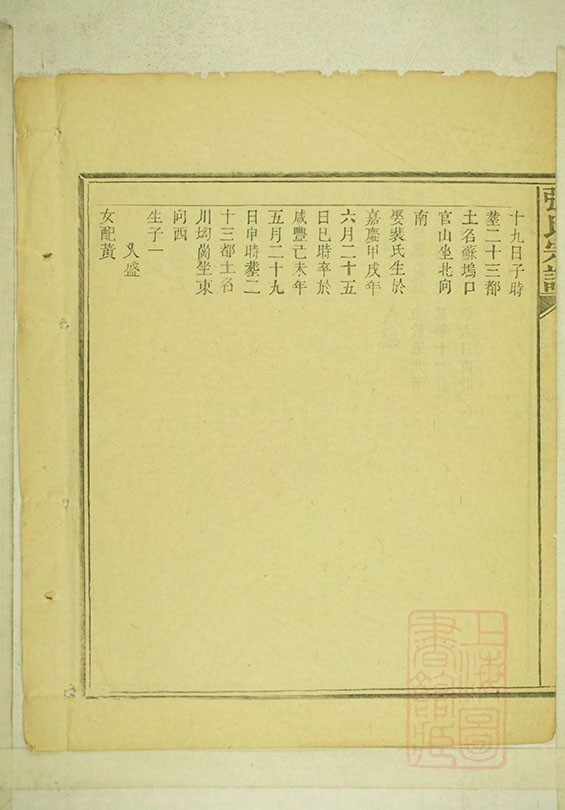 張氏宗譜
十九日子時
塟二十三都
土名蘇塢口
官山坐北向
南
娶裴氏生於
嘉慶甲戌年
六月二十五
日巳時卒於
咸豐己未年
五月二十九
日申時塟二
十三都土名
川坳崗坐東
向西
生子一
久盛
女配黃
上海圖書館藏